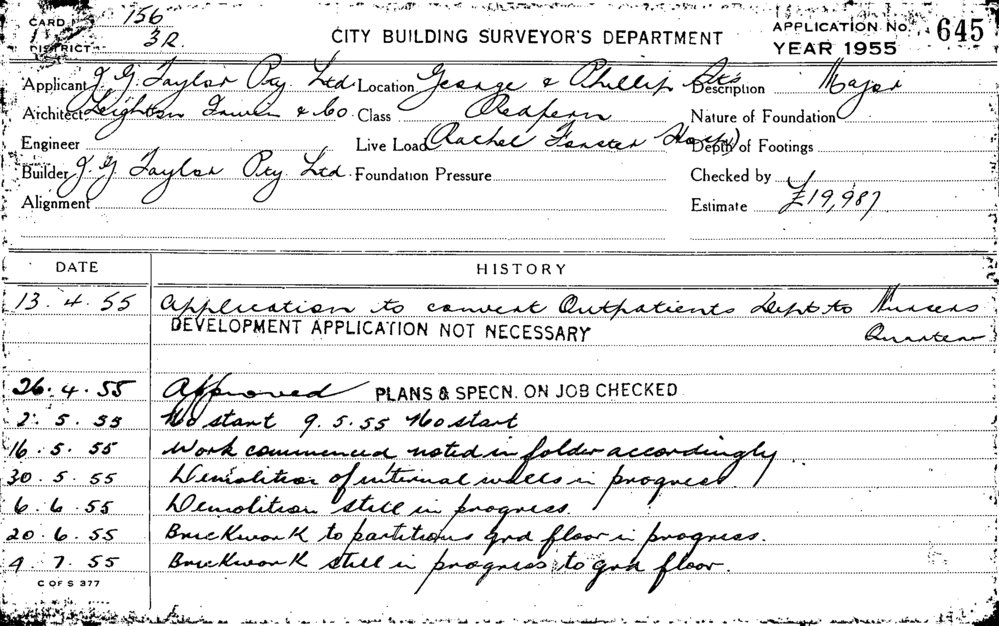 CARD 156
DISTRICT 3R.
CITY BUILDING SURVEYOR'S DEPARTMENT
APPLICATION No. 645
YEAR 1955
Applicant J. G Taylor Pty Ltd Location George & Phillip Sts Description Major
Architect Leighton Irwin & Co Class Redfern Nature of Foundation
Engineer Live Load Rachel Forster Hosp) Depth of Footings
Builder J. G Taylor Pty. Ltd. Foundation Pressure Checked by
Alignment Estimate £19,987
DATE HISTORY
13. 4. 55 Application to convert Outpatients Dept to Nurses
DEVELOPMENT APPLICATION NOT NECESSARY Quarters
26. 4. 55 Approved PLANS & SPECN. ON JOB CHECKED
2. 5. 55 No start 9. 5. 55 No start
16. 5. 55 Work commenced noted in folder accordingly
30. 5. 55 Demolition of internal walls in progress.
6. 6. 55 Demolition still in progress.
20. 6. 55 Brickwork to partitions grd floor in progress.
4. 7. 55 Brickwork still in progress to grd floor.
C OF S 377